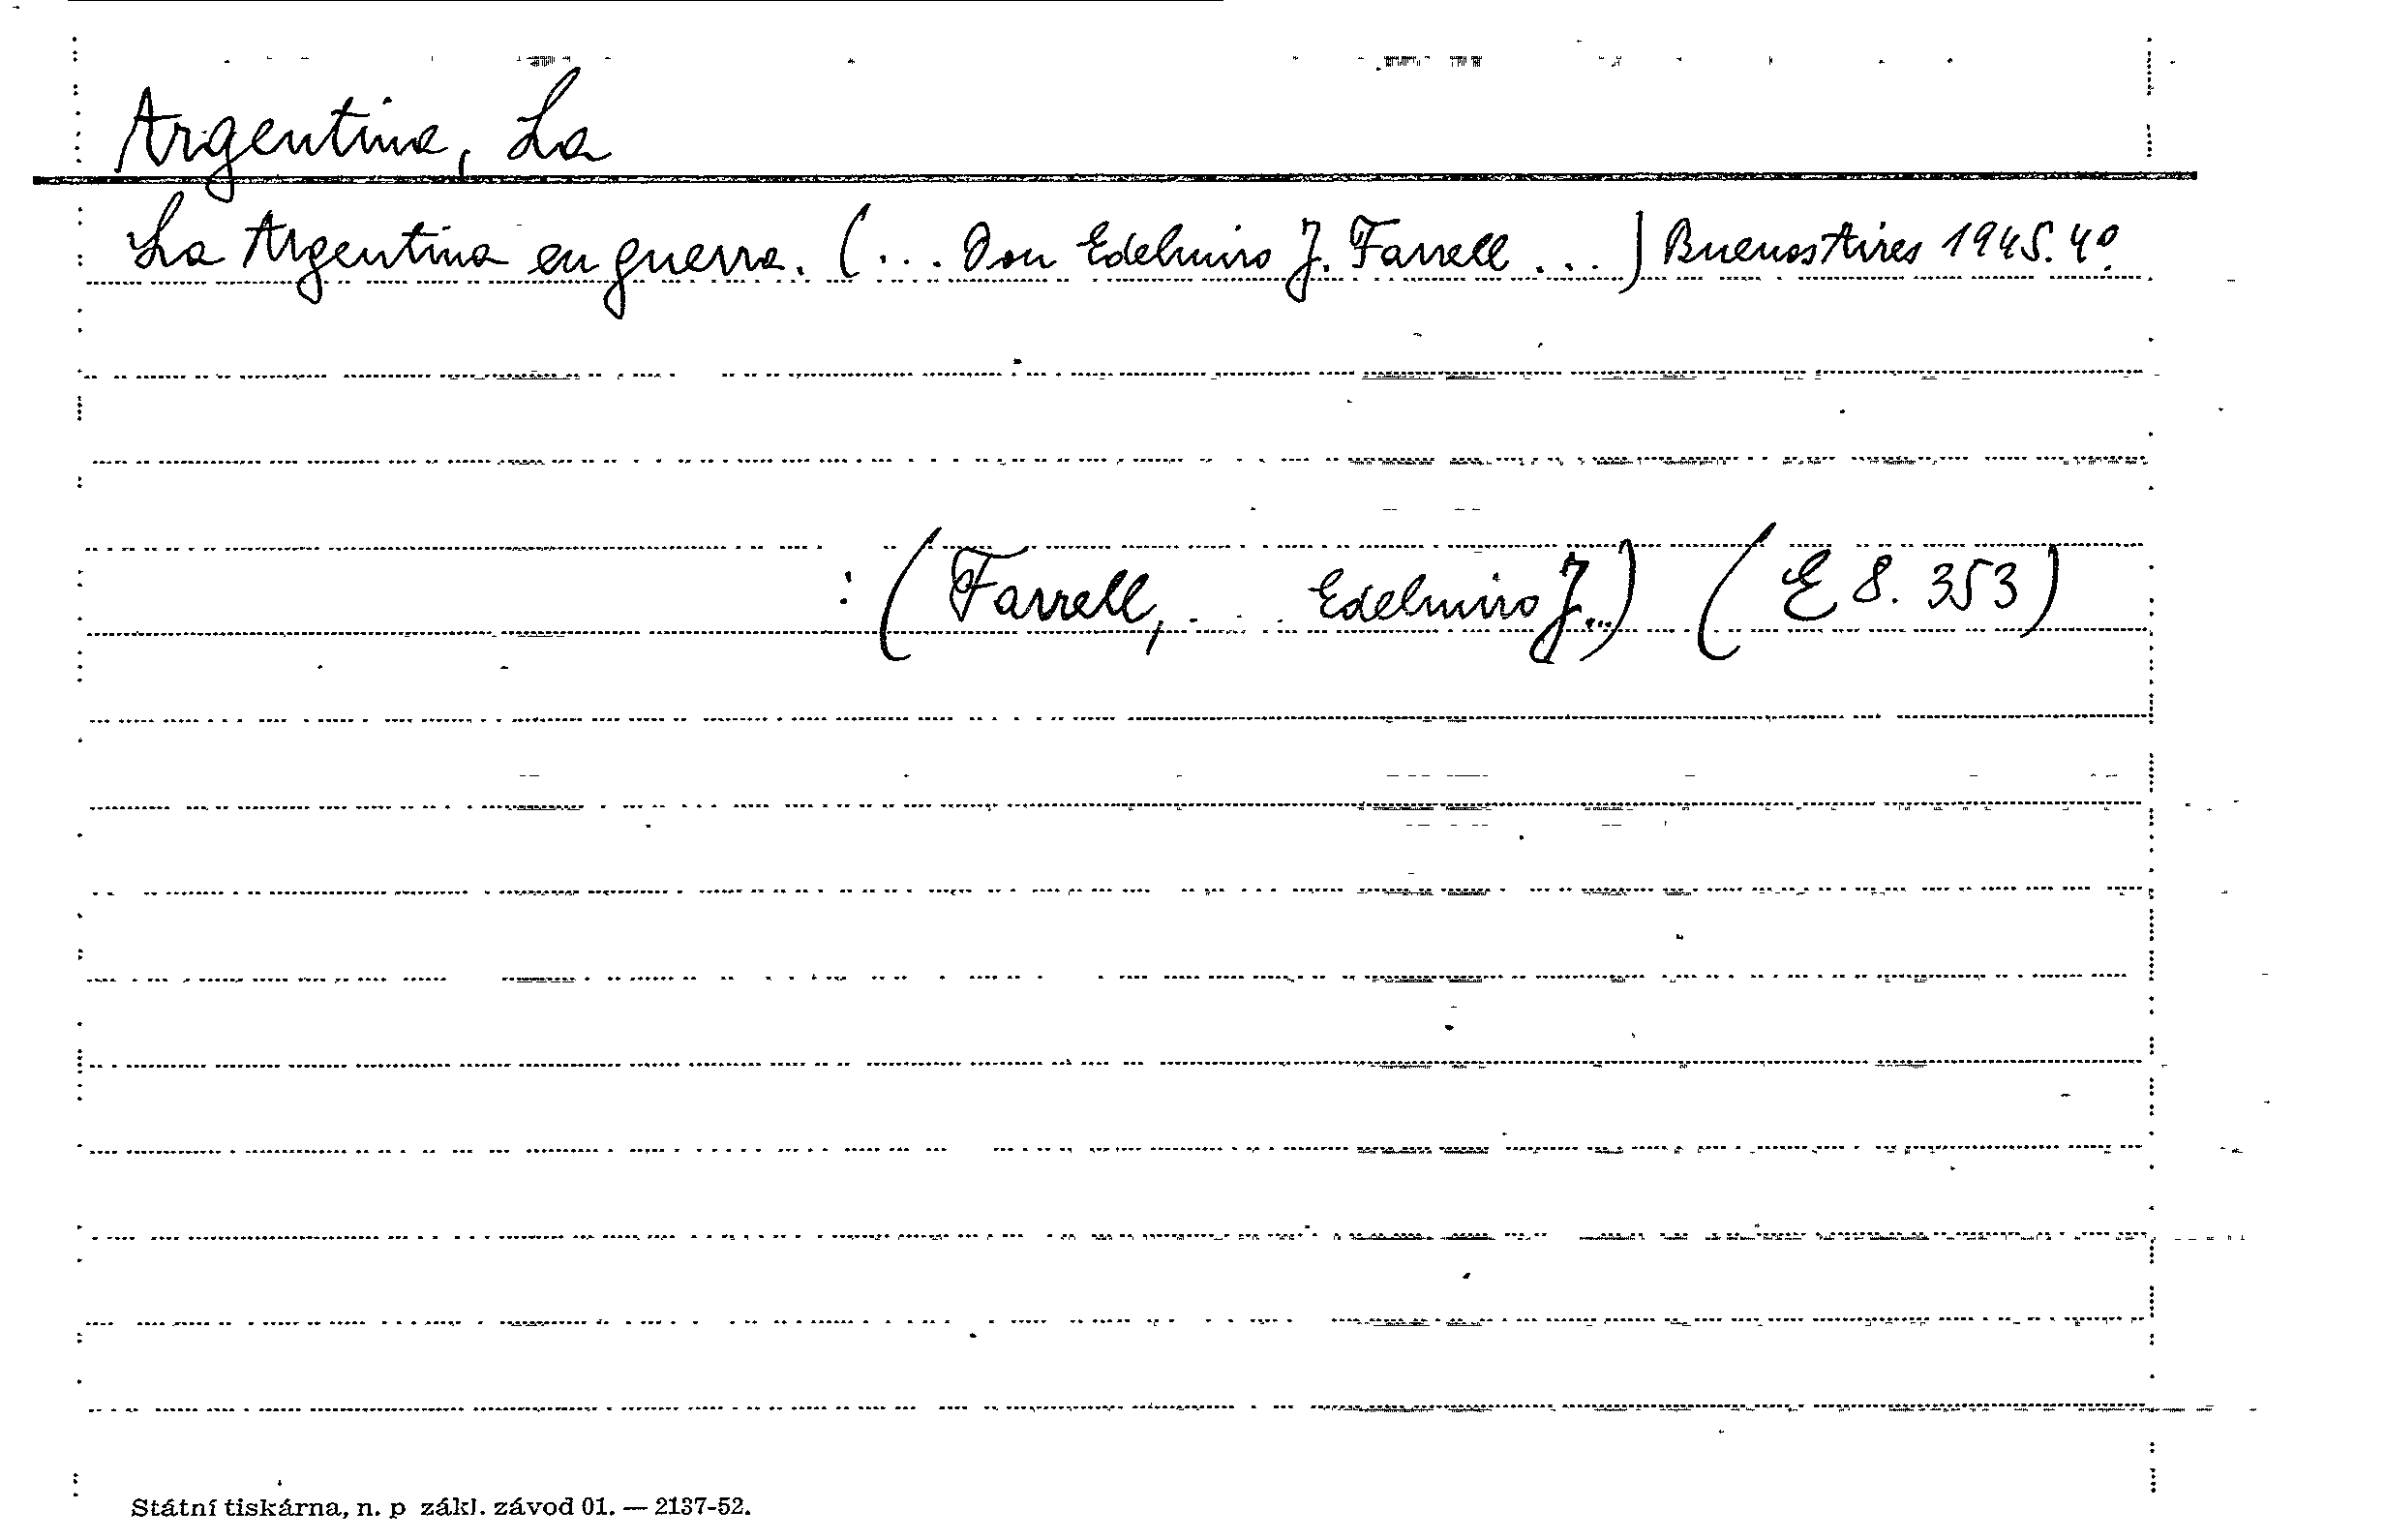 Argentina, La
La Argentina en guerra. (... Don Edelmiro J. Farrell ...) Buenos Aires 1945. 4º.
: (Farrell, . . . Edelmiro J...) (E 8. 353)
Státní tiskárna, n. p zákl. závod 01. — 2137-52.